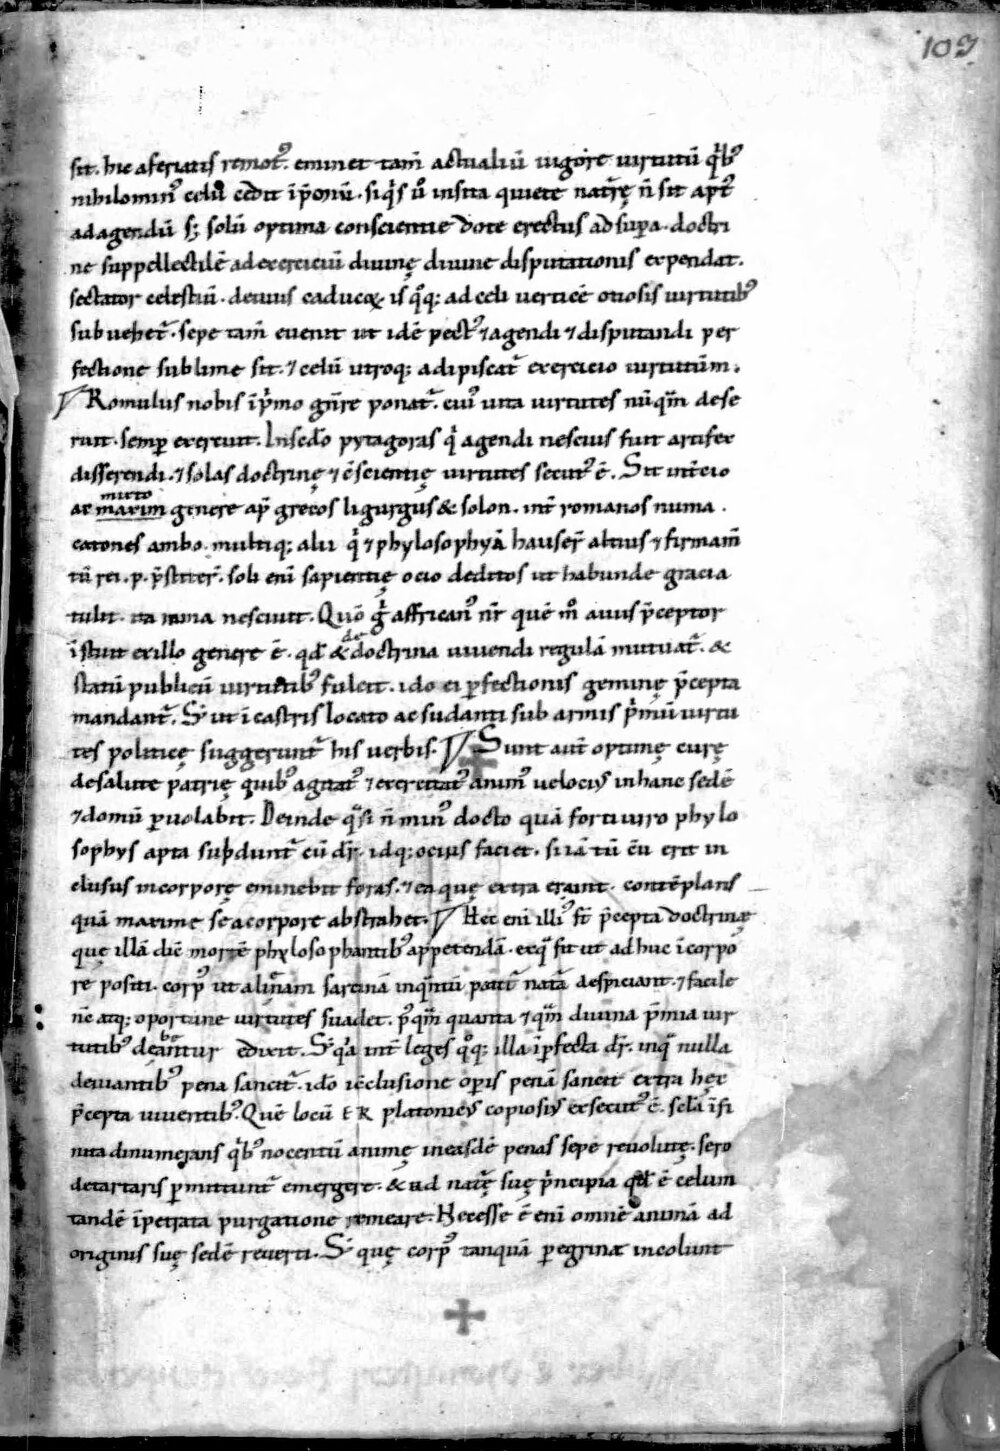 109
sit. hic a feriatis remot᷒. eminet tam̄ actualiū uigore uirtutū qͥb᷒
nihilomin᷒ celū cedit ī p̄miū. siqͥs u᷒ insita quiete natur̄ę n̄ sit apt᷒
ad agendū sꝫ solū optima conscientie dote erectus ad supa. doctri
ne suppellectilē ad exerciciū diuinę diuine disputationis expendat.
sectator celestiū. deuius caducoꝝ is qͦqꝫ ad celi uerticē otiosis uirtutib᷒
subuehet᷑. sepe tam̄ euenit ut idē pect᷒ ⁊ agendi ⁊ disputandi per
fectione sublime sit. ⁊ celū utroqꝫ adipiscat᷑ exercicio uirtutūm.
Romulus nobis ī pͥmo gn̄re ponat᷑. cui᷒ uita uirtutes nūqͣm dese
ruit. semp̱ exercuit. In sedo᷑ pytagoras qͥ agendi nescius fuit artifex
disserendi. ⁊ solas doctrinę ⁊ ēscientię uirtutes secut᷒ ē. Sit int̄cio
ac maxim mixto genere ap̄ grecos ligurgus & solon. int᷑ romanos numa.
catones ambo. multiqꝫ alii qͥ ⁊ phylosophyā hauser̄ altius ⁊ firmam̄
tū rei .p. p̄stiter̄. soli enī sapientię ocio deditos ut habunde grecia
tulit. ita roma nesciuit. Quō gͥ affrican᷒ nr̄ quē mͦ auus p̄ceptor
īstuit ex illo genere ē. qd̄ & de doctrina uiuendi regulā mutuat᷑. &
statū publicū uirtutib᷒ fulcit. ido ei ꝑfectionis geminę p̄cepta
mandant᷑. S᷑ ut ī castris locato ac sudanti sub armis pͥmū uirtu
tes politicę suggerunt᷑ his uerbis. Sunt aut̄ optimę curę
de salute patrię quib᷒ agitat᷒ ⁊ exercitat᷒ anim᷒ uelocius in hanc sedē
⁊ domū ꝑuolabit. Deinde qͣsi n̄ min᷒ docto quā forti uiro phylo
sophys apta subdunt᷑ cū dr̄. idqꝫ ocius faciet. si iā tū cū erit in
clusus in corporę eminebit foras. ⁊ ea quę extra erunt. contēplans
quā maxime se a corpore abstrahet. Hec enī illi᷒ st̄ p̄cepta doctrinę
quę illā diē mortē phylosophantib᷒ appetendā. ex qͣ fit ut ad huc ī corpo
re positi. corp᷒ ut alienam sarcinā inqͣntū patit᷑ natā despiciant. ⁊ facile
nē atqꝫ oportune uirtutes suadet. p᷒qͣm quanta ⁊ qͣm diuina p̄mia uir
tutib᷒ debeantur edixit. S᷑ qͥa int᷑ leges qͦqꝫ illa īꝑfecta dr̄. in qͣ nulla
deuiantib᷒ pena sancit᷑. ido īcclusione oꝑis penā sancit extra hęc
p̄cepta uiuentib᷒. Quē locū ER platonicus copiosius exsecut᷒ ē. sclā īfi
nita dinumerans qͥb᷒ nocentū animę in easdē penas sepe reuolutę. sero
de tartaris ꝑmittunt᷑ emergere. & ad natur̄ę suę pͥncipia qd̄ ē celum
tandē īpetrata purgatione remeare. Necesse ē enī omnē animā ad
originis suę sedē reuerti. S᷑ quę corp᷒ tanquā ꝑegrinæ incolunt